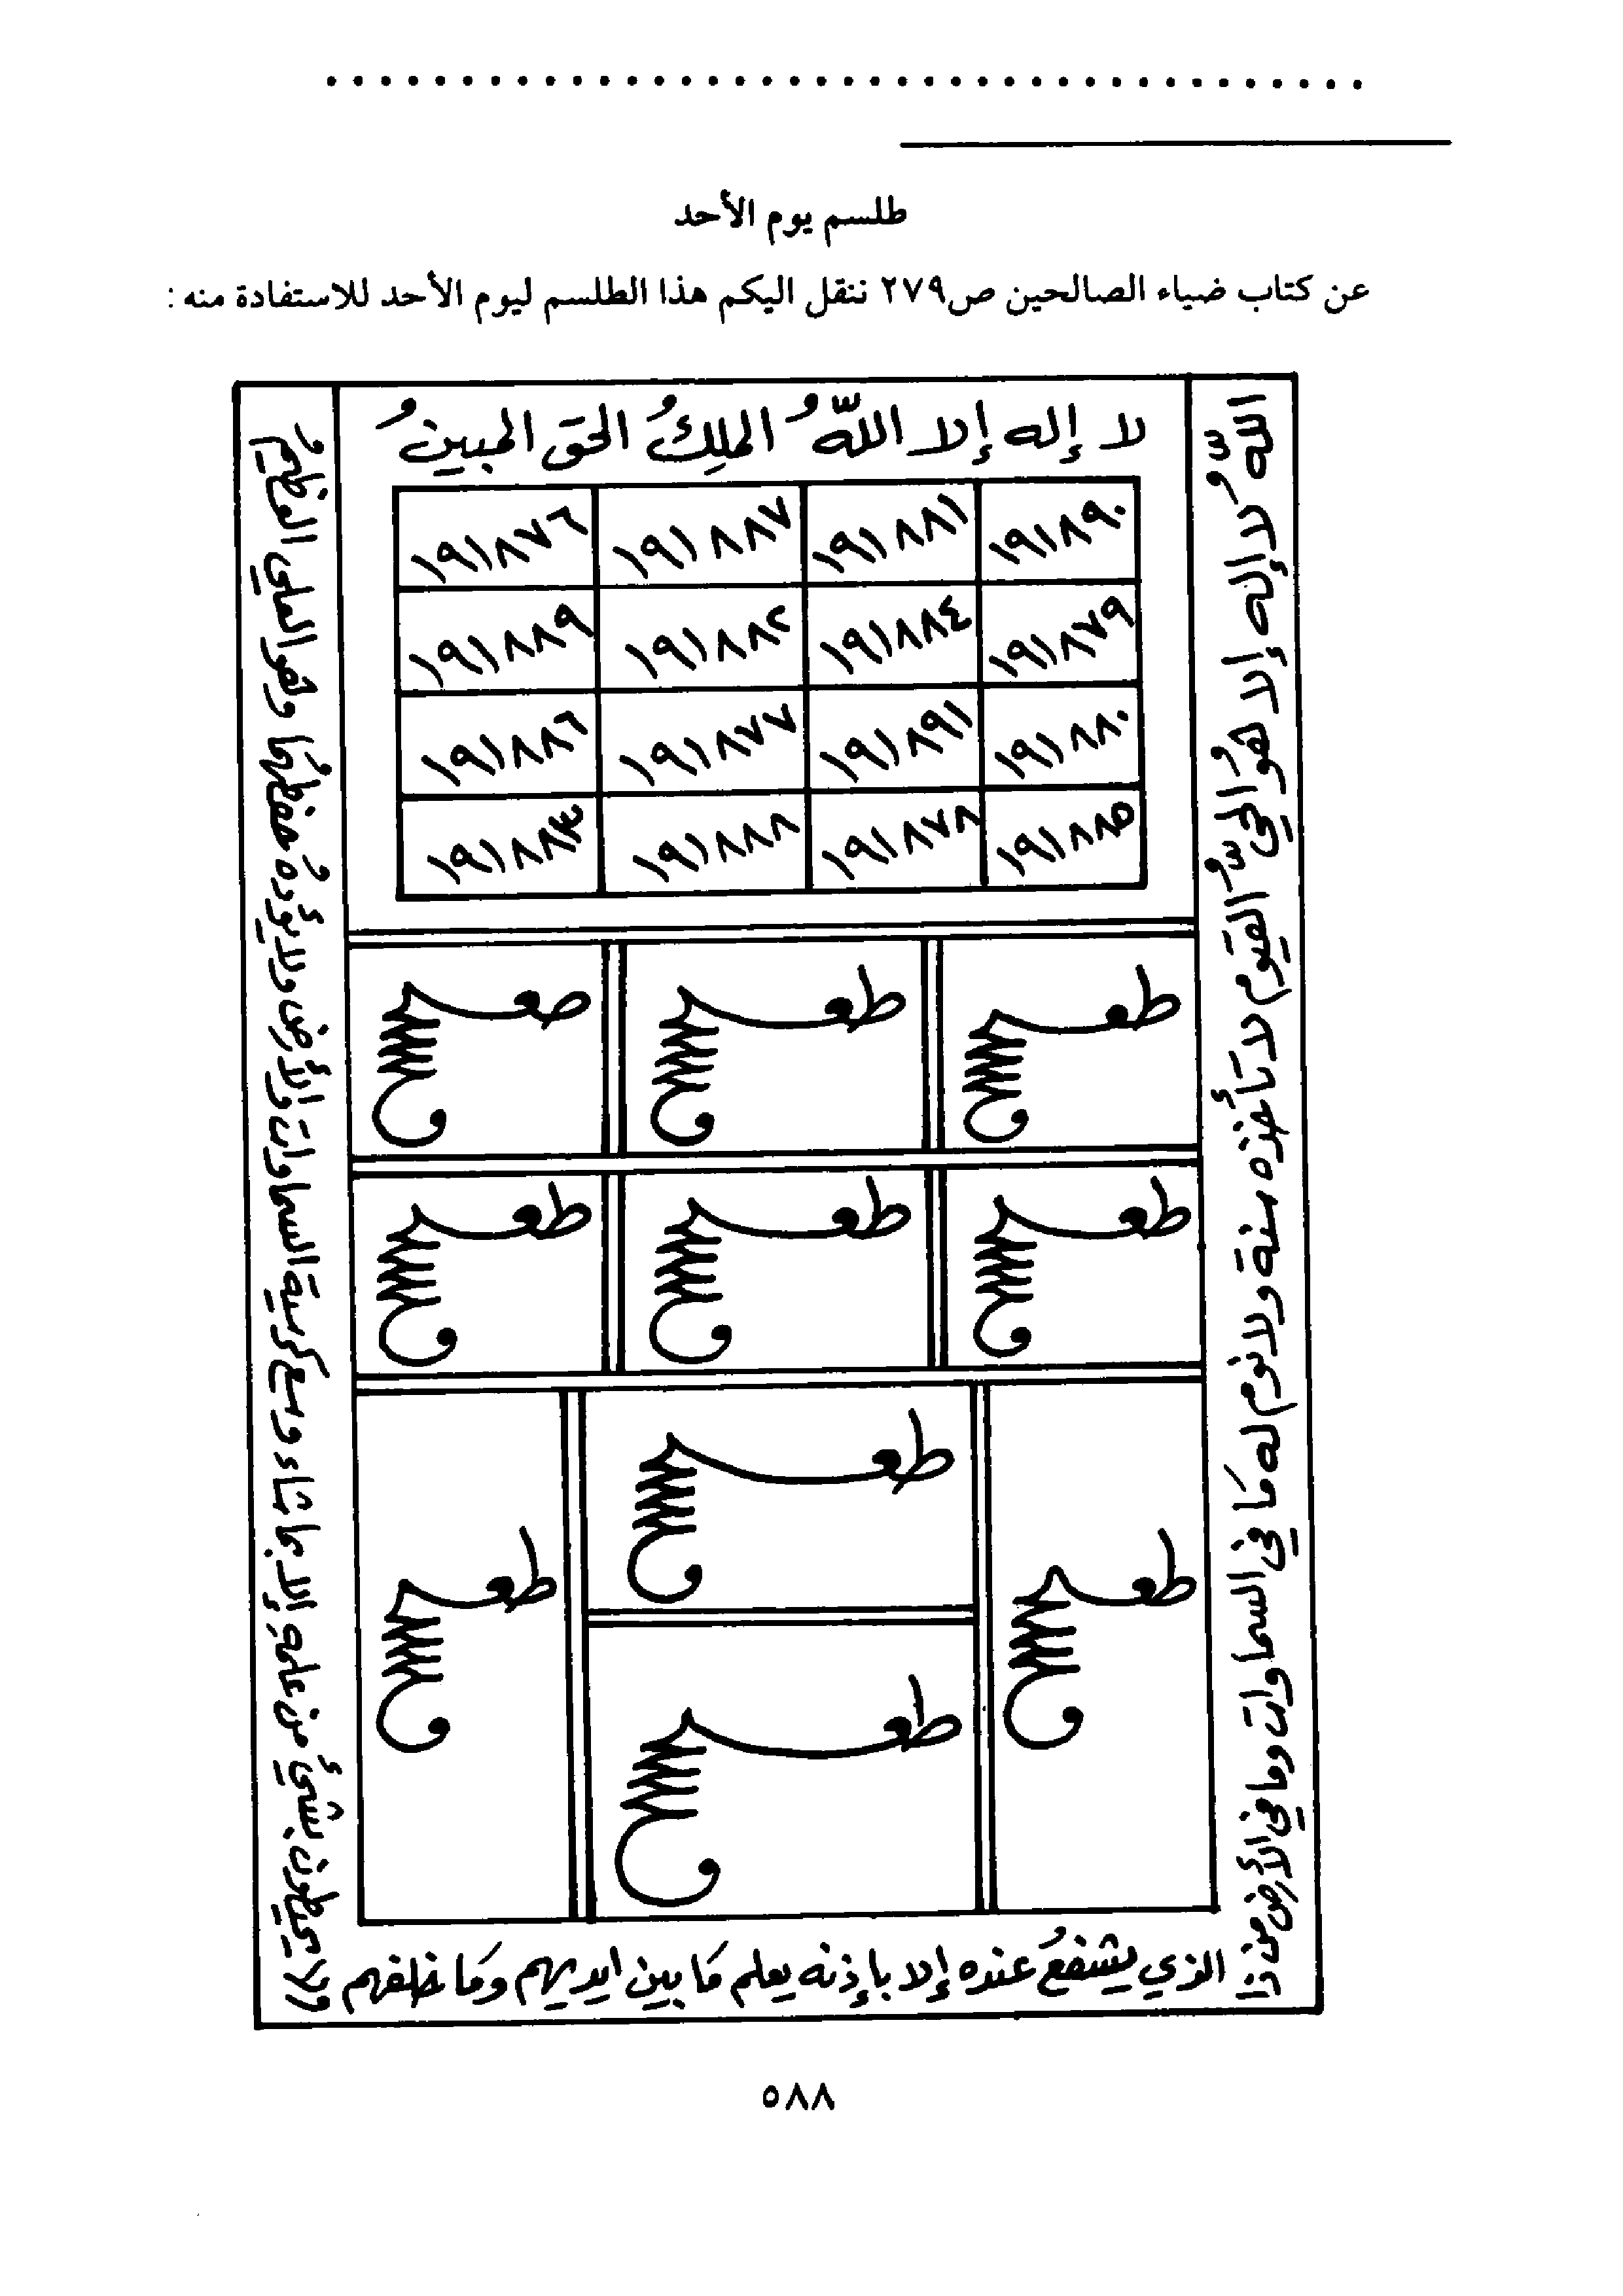 طلسم يوم الأحد
عن كتاب ضياء الصالحين ص٢٧٩ ننقل اليكم هذا الطلسم ليوم الأحد للاستفادة منه :
لا إله إلا اللّهُ الملِكُ الحَق المبينُ
١٩١٨٩٠ ١٩١٨٨١ ١٩١٨٨٧ ١٩١٨٧٦
١٩١٨٧٩ ١٩١٨٨٤ ١٩١٨٨٢ ١٩١٨٨٩
١٩١٨٨٠ ١٩١٨٩١ ١٩١٨٧٧ ١٩١٨٨٦
١٩١٨٨٥ ١٩١٨٧٨ ١٩١٨٨٨ ١٩١٨٨٣
اللّهُ لا إله إلا هُوَ الحيُّ القيّوم لا تأخذه سنة ولا نوم له مَا في السماوات وما في الأرض من ذا
الذي يشفعُ عنده إلا بإذنه يعلم مَا بين ايديهم ومَا خلفهم
ولا يحيطون بشيءُ من علمهِ إلا بما شاء وسع كرسيه السماوات والأرض ولا يؤدهُ حفظهُما وهو العلي العظيمُ
٥٨٨